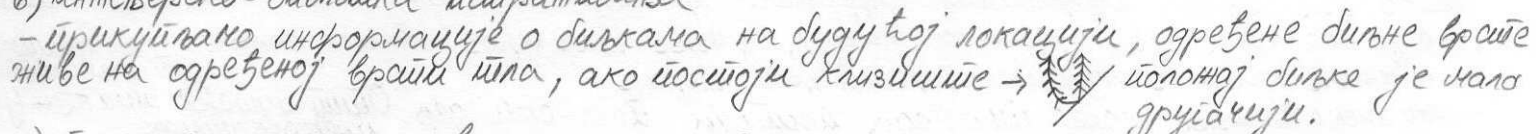 - прикупљамо информације о биљкама на будућој локацији, одређене биљне врсте
живе на одређеној врсти тла, ако постоји клизиште → положај биљке је мало
другачији.